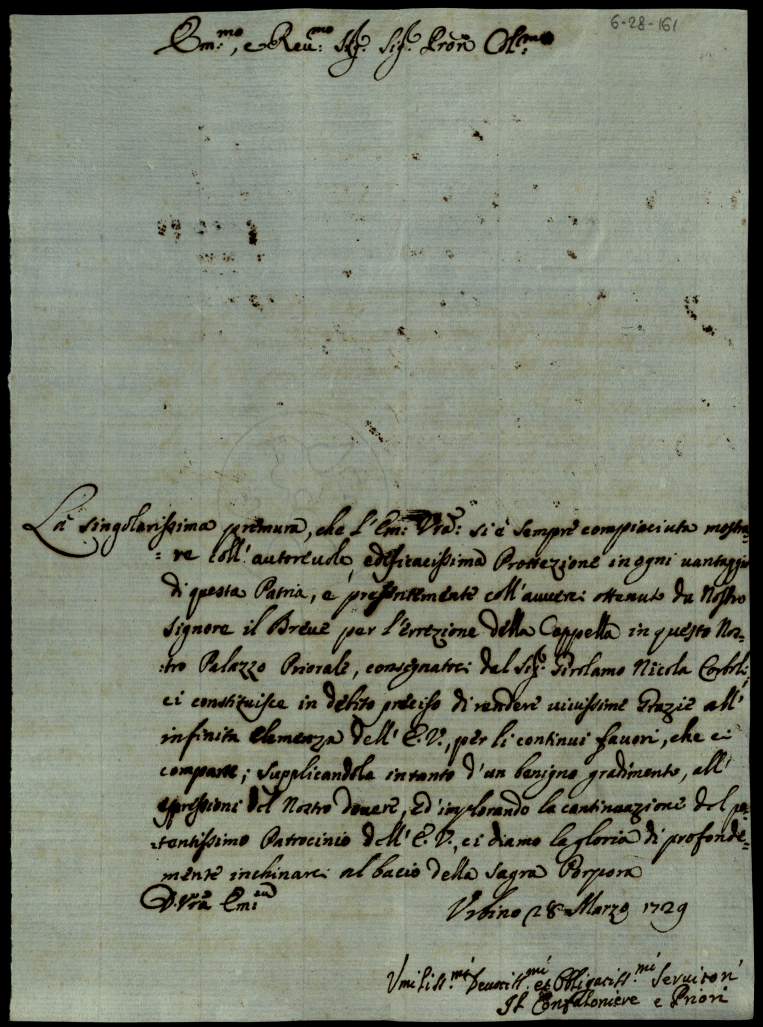 6-28-161
Em:mo, e Reu:mo Sig: Sig: Pron Col:mo
La singolarissima premura, che l'Em: Vra: si è sempre compiaciuta mostra=
=re coll'autoreuole, ed efficacissima Prottezione in ogni uantaggio
di questa Patria, e presentemente coll'auuerci ottenuto da Nostro
Signore il Breue per l'Errezione della Cappella in questo Nos=
=tro Palazzo Priorale, consegnatoci dal Sig: Girolamo Nicola Corboli,
ci constituisce in debito preciso di rendere uiuissime Grazie all'
infinita Clemenza dell'E.V., per li continui fauori, che ci
comparte; supplicandola intanto d'un benigno gradimento, all'
espressioni del Nostro douere, ed'implorando la continuazione del po=
=tentissimo Patrocinio dell'E.V., ci diamo la gloria di profonda=
=mente inchinarci al bacio della Sagra Porpora
D. Vra Em:za
Vrbino 28 Marzo 1729
Vmiliss:mi Deuotiss:mi et Obligatiss:mi Seruitori
Il Confaloniere e Priori